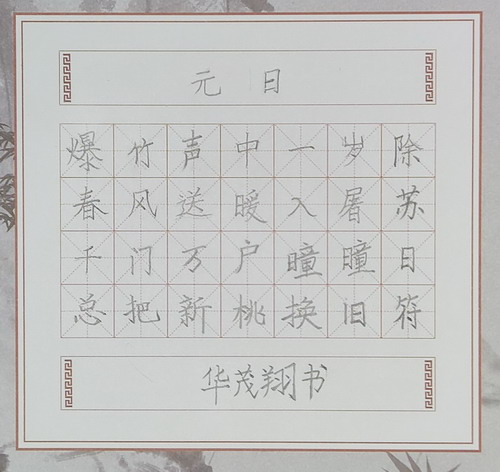 元日
爆竹声中一岁除
春风送暖入屠苏
千门万户曈曈日
总把新桃换旧符
华茂翔书